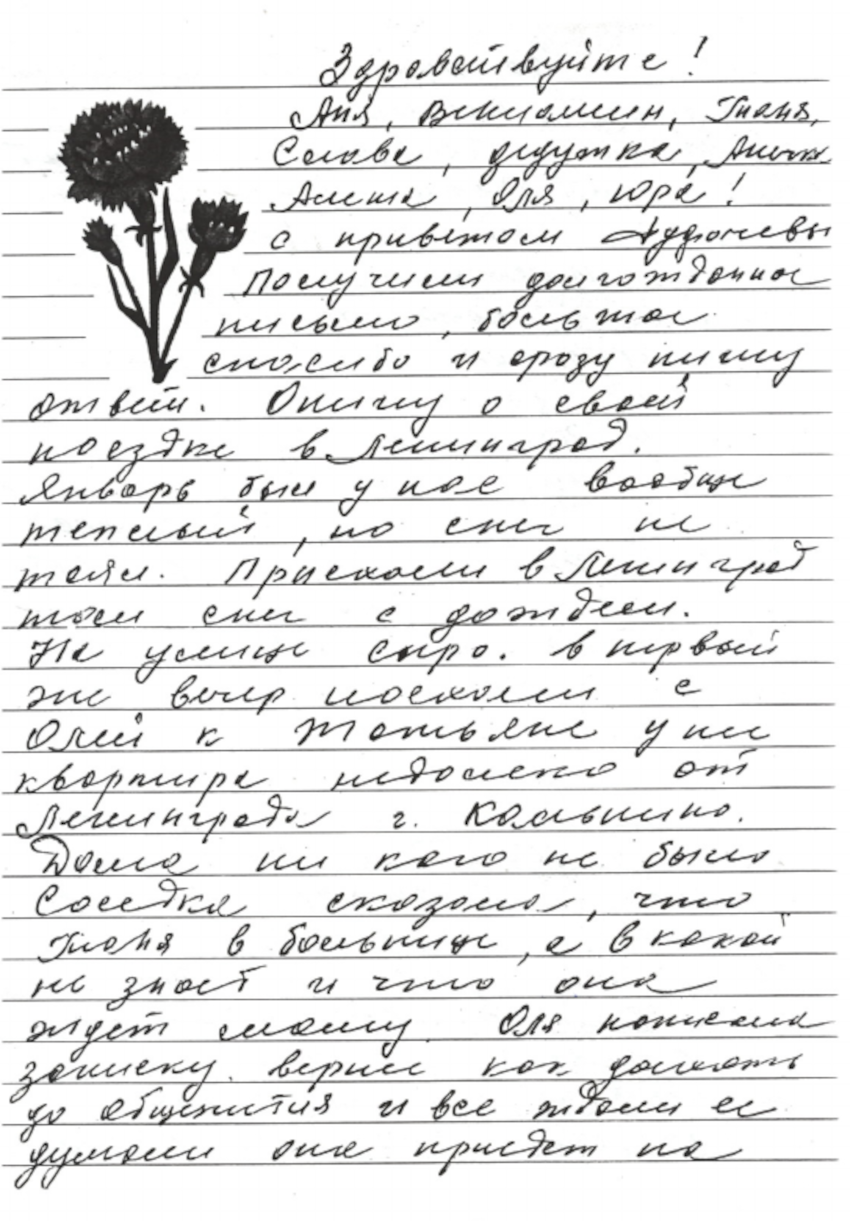 Здравствуйте!
Аня, Вениамин, Таня,
Слава, дедушка, Анечка
Алеша, Оля, Юра!
с приветом
Получили долгожданное
письмо, большое
спасибо и сразу пишу
ответ. Опишу о своей
поездке в Ленинград.
Январь был у нас вообще
теплый, но снег не
таял. Приехали в Ленинград
там снег с дождем.
На улице сыро. в первый
же вечер поехали с
Олей к Татьяне у ни
квартира недалеко от
Ленинграда г. Колпино.
Дома ни кого не было
Соседка сказала, что
Таня в больнице, а в какой
не знает и что она
ждет маму. Оля написала
записку. вернее как доехать
до общежития и все ждали ее
думали она приедет на